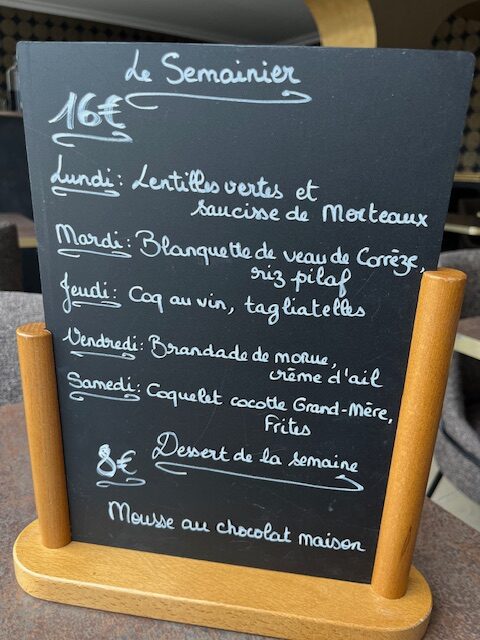 Le Semainier
16€
Lundi: Lentilles vertes et
saucisse de Morteaux
Mardi: Blanquette de veau de Corrèze,
riz pilaf
Jeudi: Coq au vin, tagliatelles
Vendredi: Brandade de morue,
crème d'ail
Samedi: Coquelet cocotte Grand-Mère,
Frites
8€ Dessert de la semaine
Mousse au chocolat maison